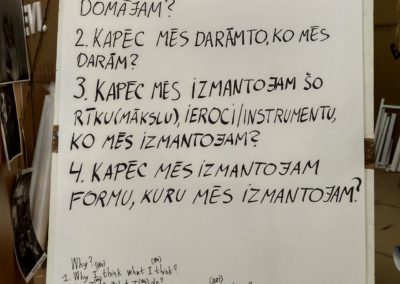 DOMĀJAM?
2. KAPĒC MĒS DARĀMTO, KO MĒS
DARĀM?
3. KAPĒC MĒS IZMANTOJAM ŠO
RĪKU(MĀKSLU), IEROCI/INSTRUMENTU,
KO MĒS IZMANTOJAM?
4. KAPĒC MĒS IZMANTOJAM
FORMU, KURU MĒS IZMANTOJAM?
Why?
(we) (we)
1. Why I think what I think?